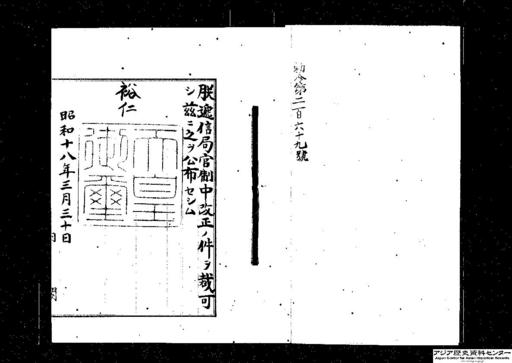 勅令第二百六十九號
朕遞信局官制中改正ノ件ヲ裁可
シ茲ニ之ヲ公布セシム
裕仁
天皇御璽
昭和十八年三月三十日
アジア歴史資料センター
Japan Center for Asian Historical Records